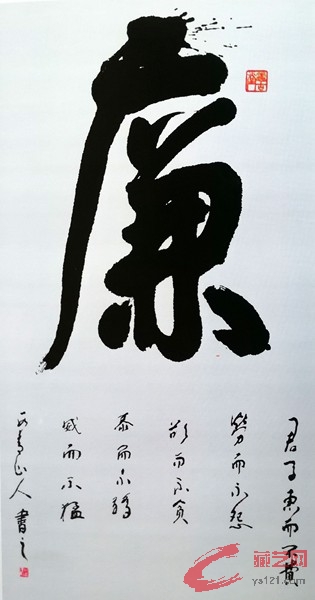 廉
君子惠而不費
勞而不怨
欲而不貪
泰而不驕
威而不猛
山人書之
藏艺网
ys121.com